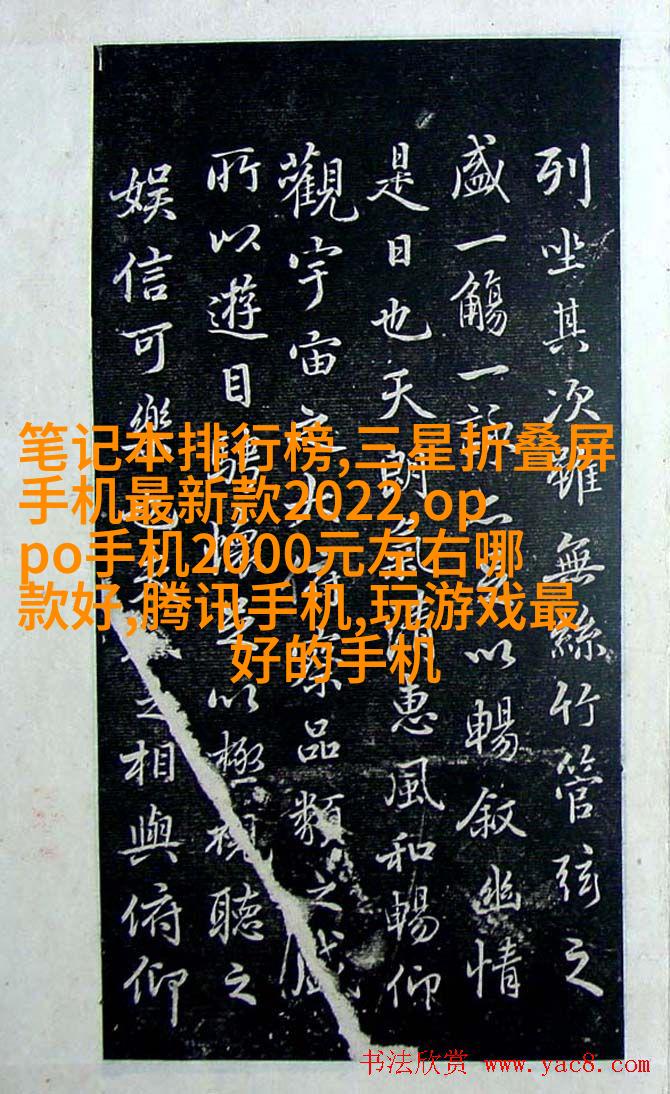 列坐其次雖無絲竹管弦之
盛一觴一詠亦足以暢叙幽情
是日也天朗氣清惠風和暢仰
觀宇宙之大俯察品類之盛
所以遊目騁懷足以極視聽之
娛信可樂也之相與俯仰
笔记本排行榜,三星折叠屏
手机最新款2022,op
po手机2000元左右哪
款好,腾讯手机,玩游戏最
好的手机
书法欣赏 www.yac8.com